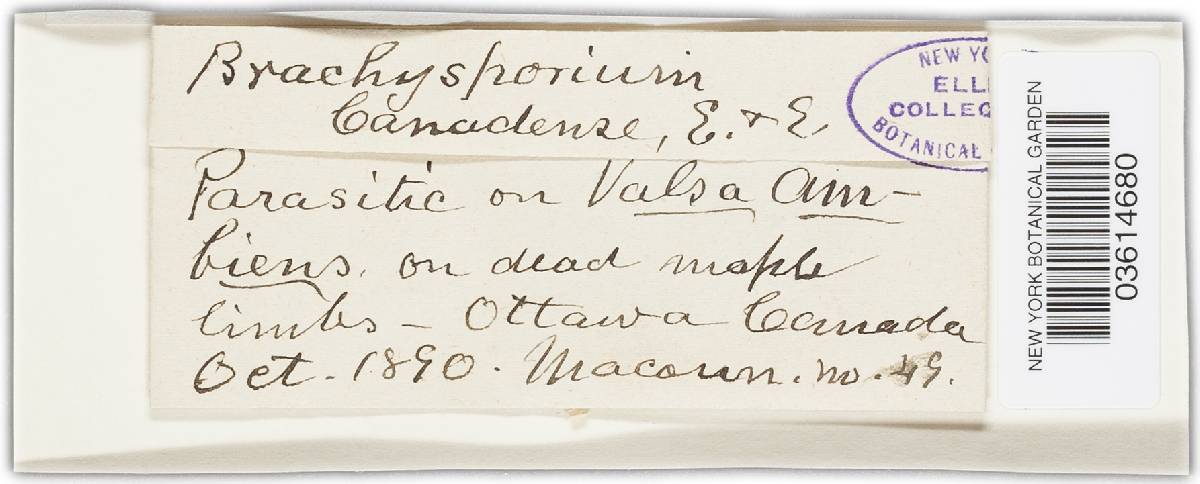 Brachysporium
Canadense, E. & E
Parasitic on Valsa Am-
biens. on dead maple
limbs – Ottawa Canada
Oct. 1890. Macoun. no. 49.
NEW YO
ELLI
COLLEC
BOTANICAL
NEW YORK BOTANICAL GARDEN
03614680